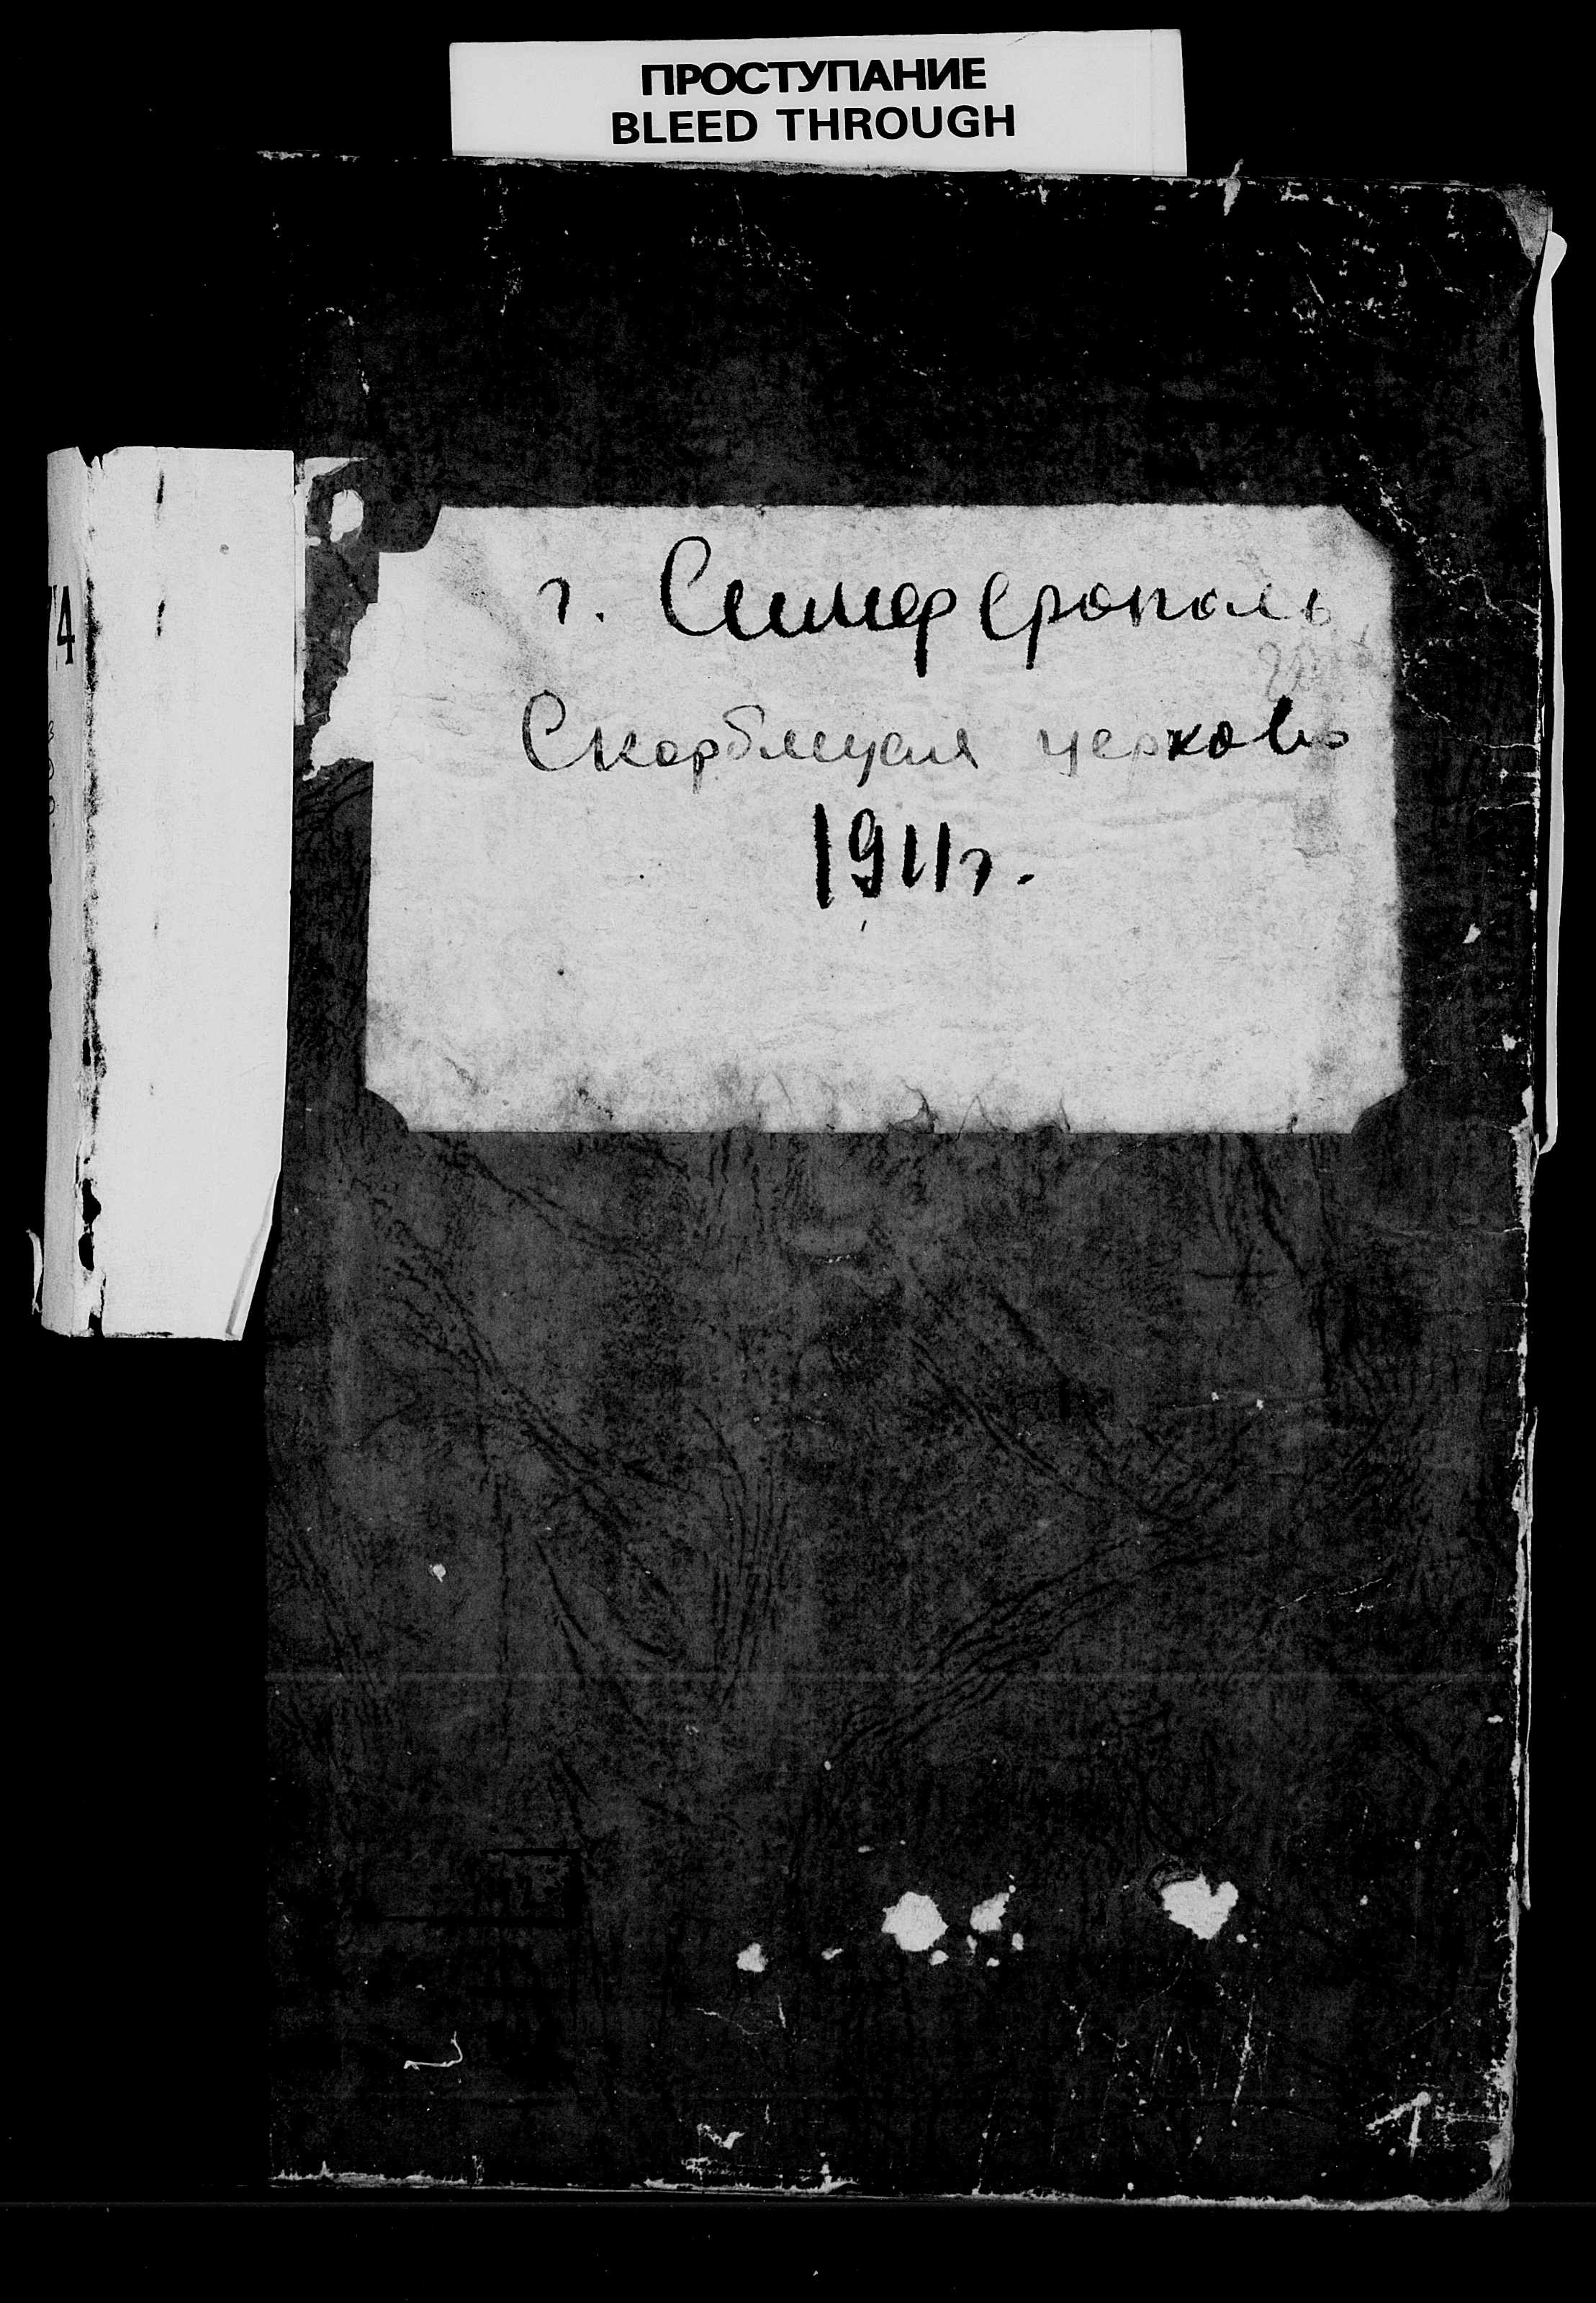 ПРОСТУПАНИЕ
BLEED THROUGH
г. Симферополь
Скорбящая церковь
1911г.
4